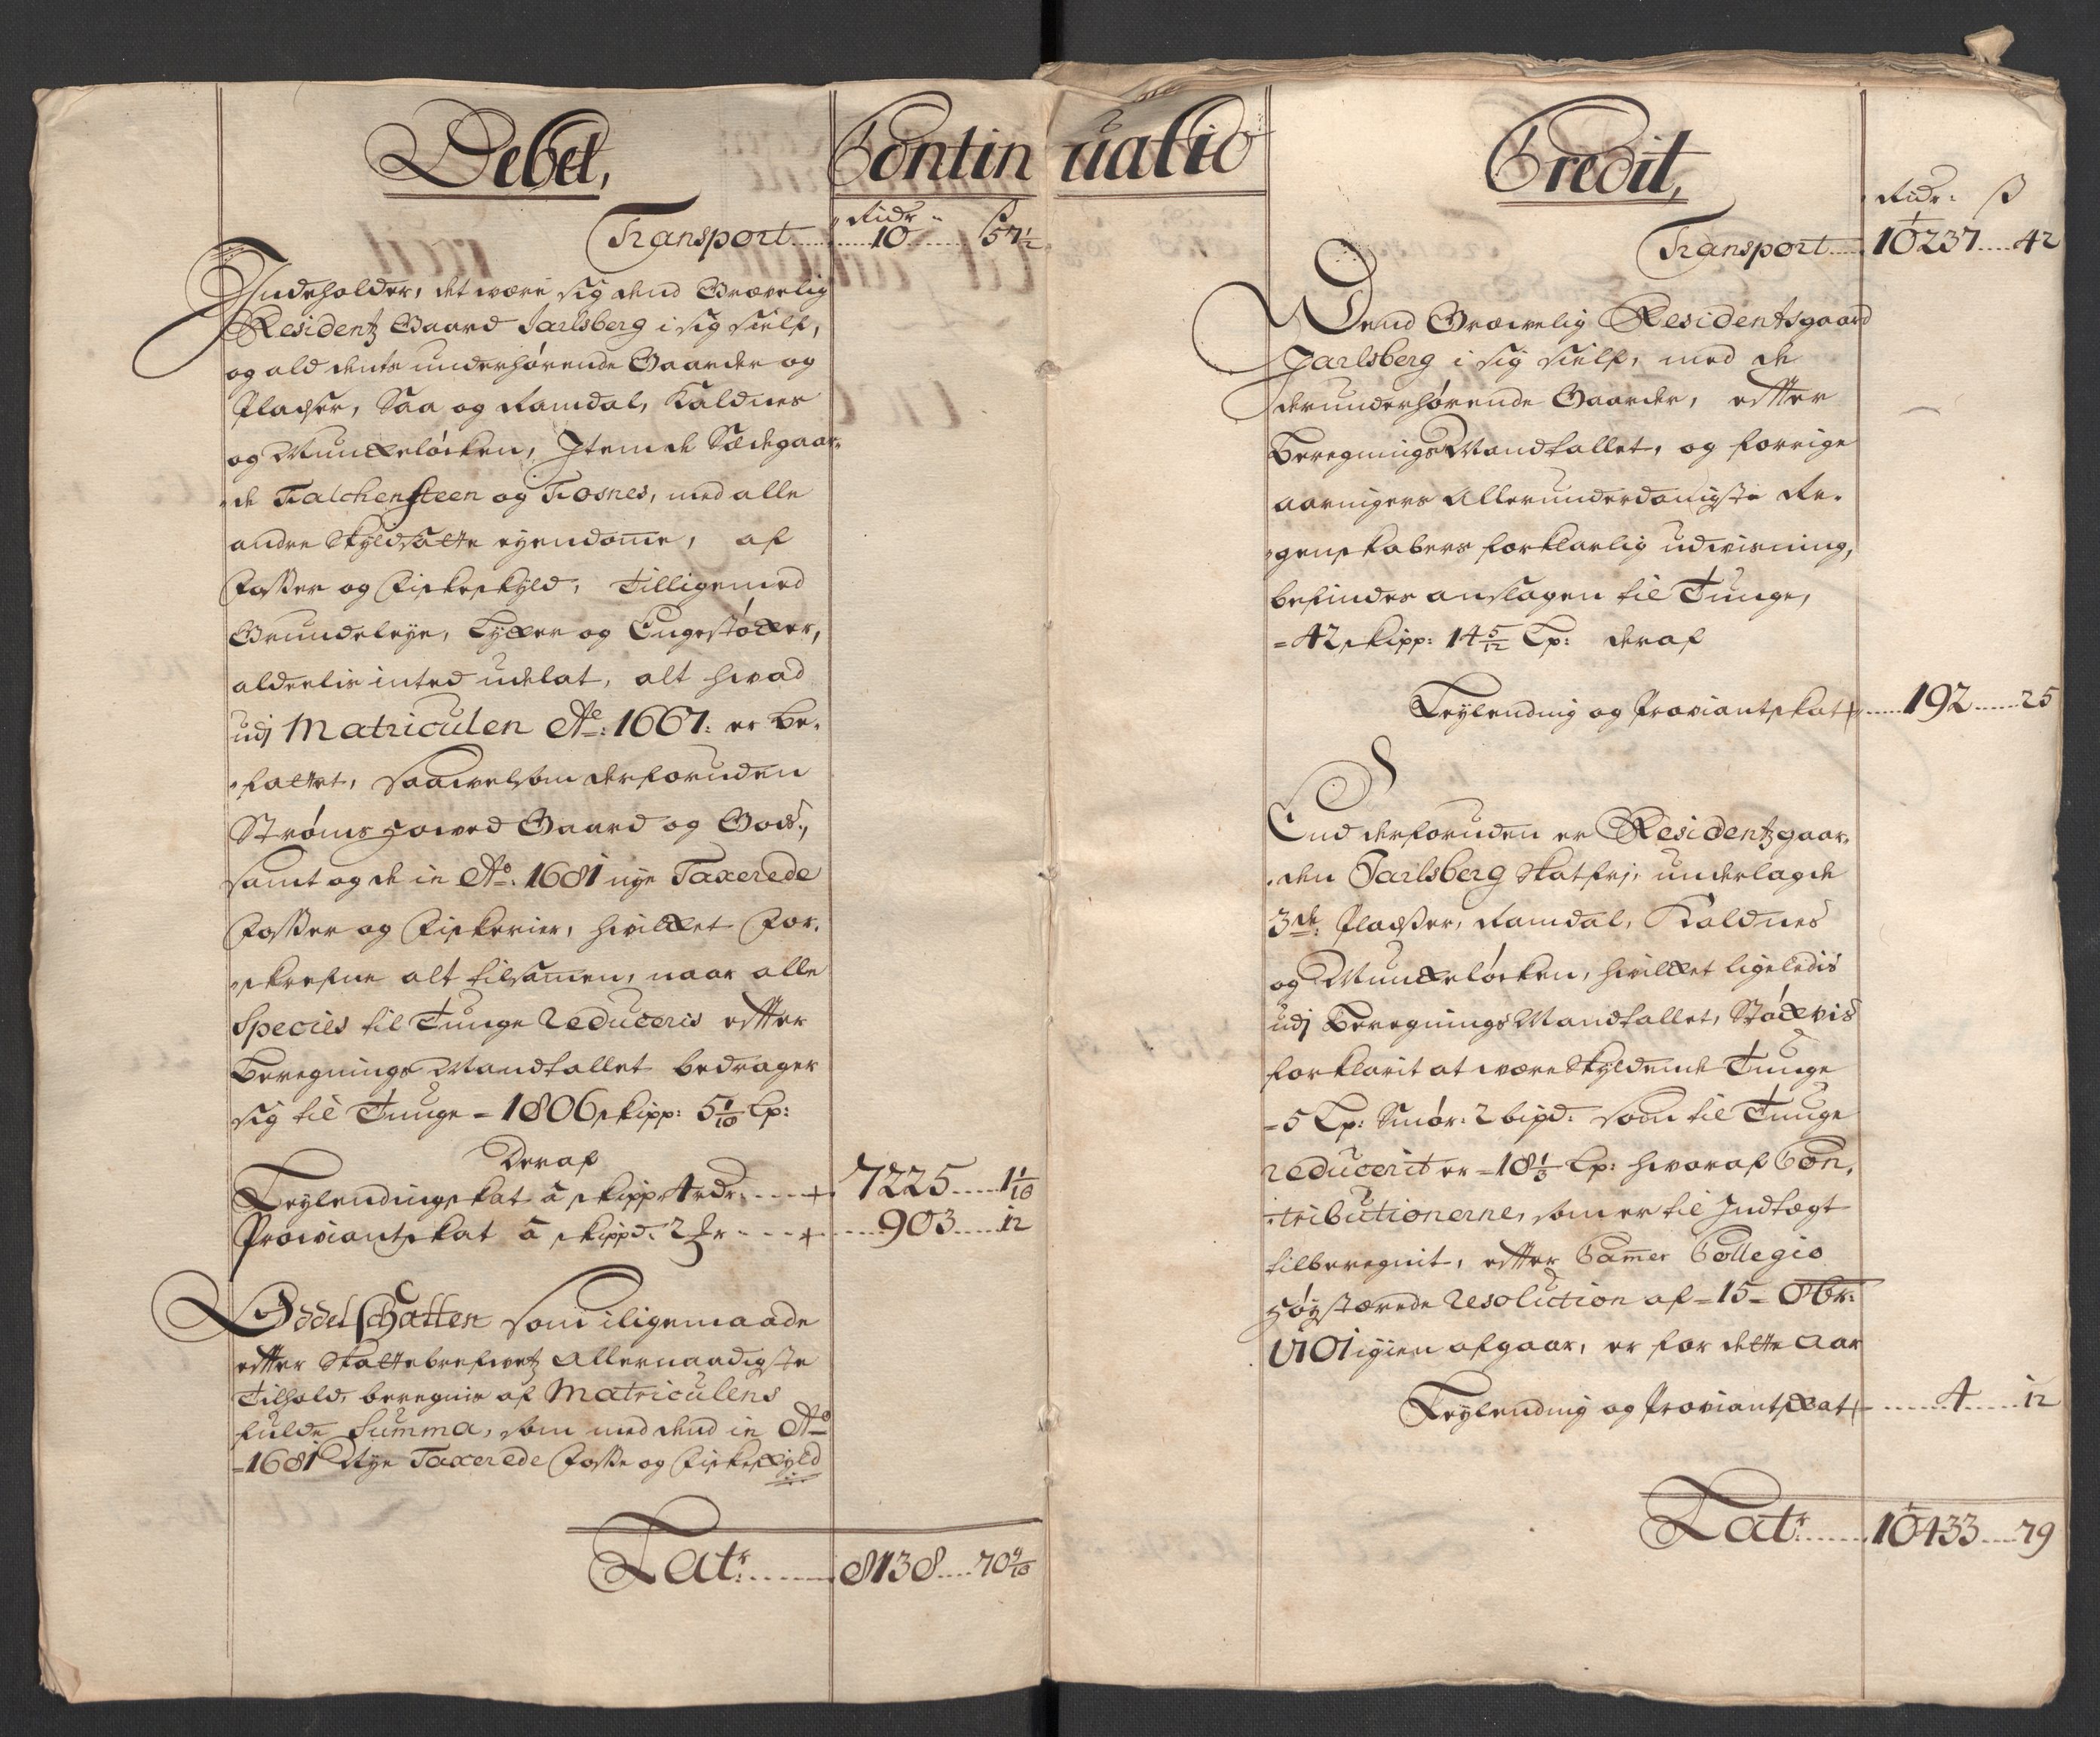 Debet,
Continuatio
Ridr: ß
Transport 10 57 1/2
Indeholder, det være sig dend Grævelig
Residentz Gaard Jarlsberg i sig sielf,
og ald dents underhørende Gaarder og
Pladser, Saa og Ramdal, Kaldnes
og Munkeløcken, Item de Sædegaar-
de Falchensteen og Fosnes, med alle
andre Skyldsatte eyendomme, af
Fosser og Fiskeskyld, Tilligemed
Grundeleye, Lykker og Engestøkker,
alderlis inted udelat, alt hvad
udj Matriculen Ao: 1667: er be-
fattet, saavelsom derforuden
Strøms Howed Gaard og Gods,
samt og de in Ao: 1681 nye Taxerede
Fosser og Fiskerier, hvilket For-
skrefne alt tilsamen, naar alle
Species til Tunge Reduceris efter
Beregnings Mandtallet bedrager
sig til Tunge - 1806 skipp: 5 1/10 Lp:
Deraf
Leylendingskat â skipp 4 rdr 7225 1 1/10
Proviantskat â skippd: 2 903 12
Oddelschatten som iligemaade
efter Skattebrefwetz Allernaadigste
Tilhold, beregnis af Matriculens
fulde Summa, som med dend in Ao
-1681 Nye Taxerede Fosse og Fiskeskyld
Latr: 8138 70 9/10
Credit,
Ridr: ß
Transport 10237 42
Dend Grævelig Residentsgaard
Jarlsberg i sig sielf, med de
derunderhørende Gaarder, efter
Beregnings Mandtallet, og forrige
aaringers Allerunderdanigste Re-
genskabers forklarlig udvisning,
befindes anslagen til Tunge,
= 42 skipp: 14 5/12 Lp: deraf
Leylending og Proviantskat 192 25
End derforuden er Residentzgaar-
den Jarlsberg Skatfrj, underlagde
3de: Pladser, Ramdal, Kaldnes
og Munkeløcken, hvilket ligeledis
udj Beregnings Mandtallet, Støkvis
forklarit at være Skyldende Tunge
- 5 Lp: Smør: 2 bipd: som til Tunge
reducerit er - 18 1/3 Lp: hvoraf Con-
tributionerne, som er til Indtægt
tilberegnit, efter Camer Collegio
Høystærede Resolution af - 15 - 8br:
1701 igien afgaar, er for dette Aar
Leylending og Proviantskat 4 12
Latr: 10433 79